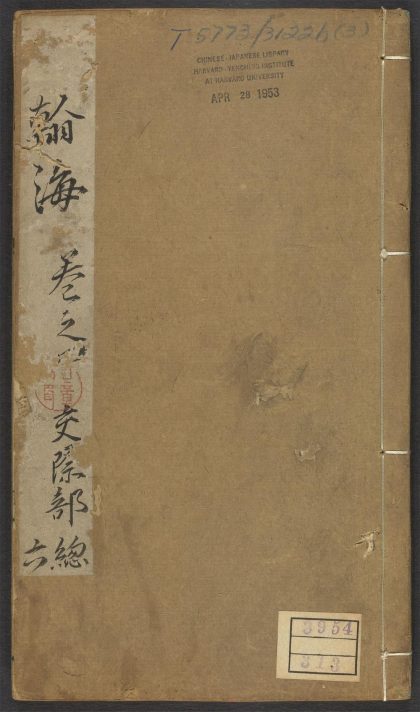 T 5773/3122b (3)
CHINESE-JAPANESE LIBRARY
HARVARD-YENCHING INSTITUTE
AT HARVARD UNIVERSITY
APR 28 1953
翰海 卷之 交際部
總六
3954
313